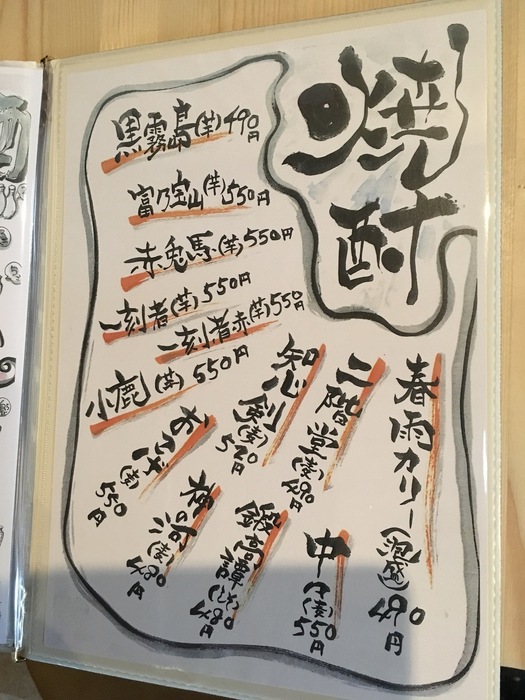 焼酎
黒霧島(芋)490円
富乃宝山(芋)550円
赤兎馬(芋)550円
一刻者(芋)550円
一刻者赤(芋)550円
小鹿(芋)550円
知心剣(麦)520円
二階堂(麦)490円
春雨カリー(泡盛)490円
(麦)550円
(麦)480円
鍛高譚(しそ)480円
中々(麦)550円